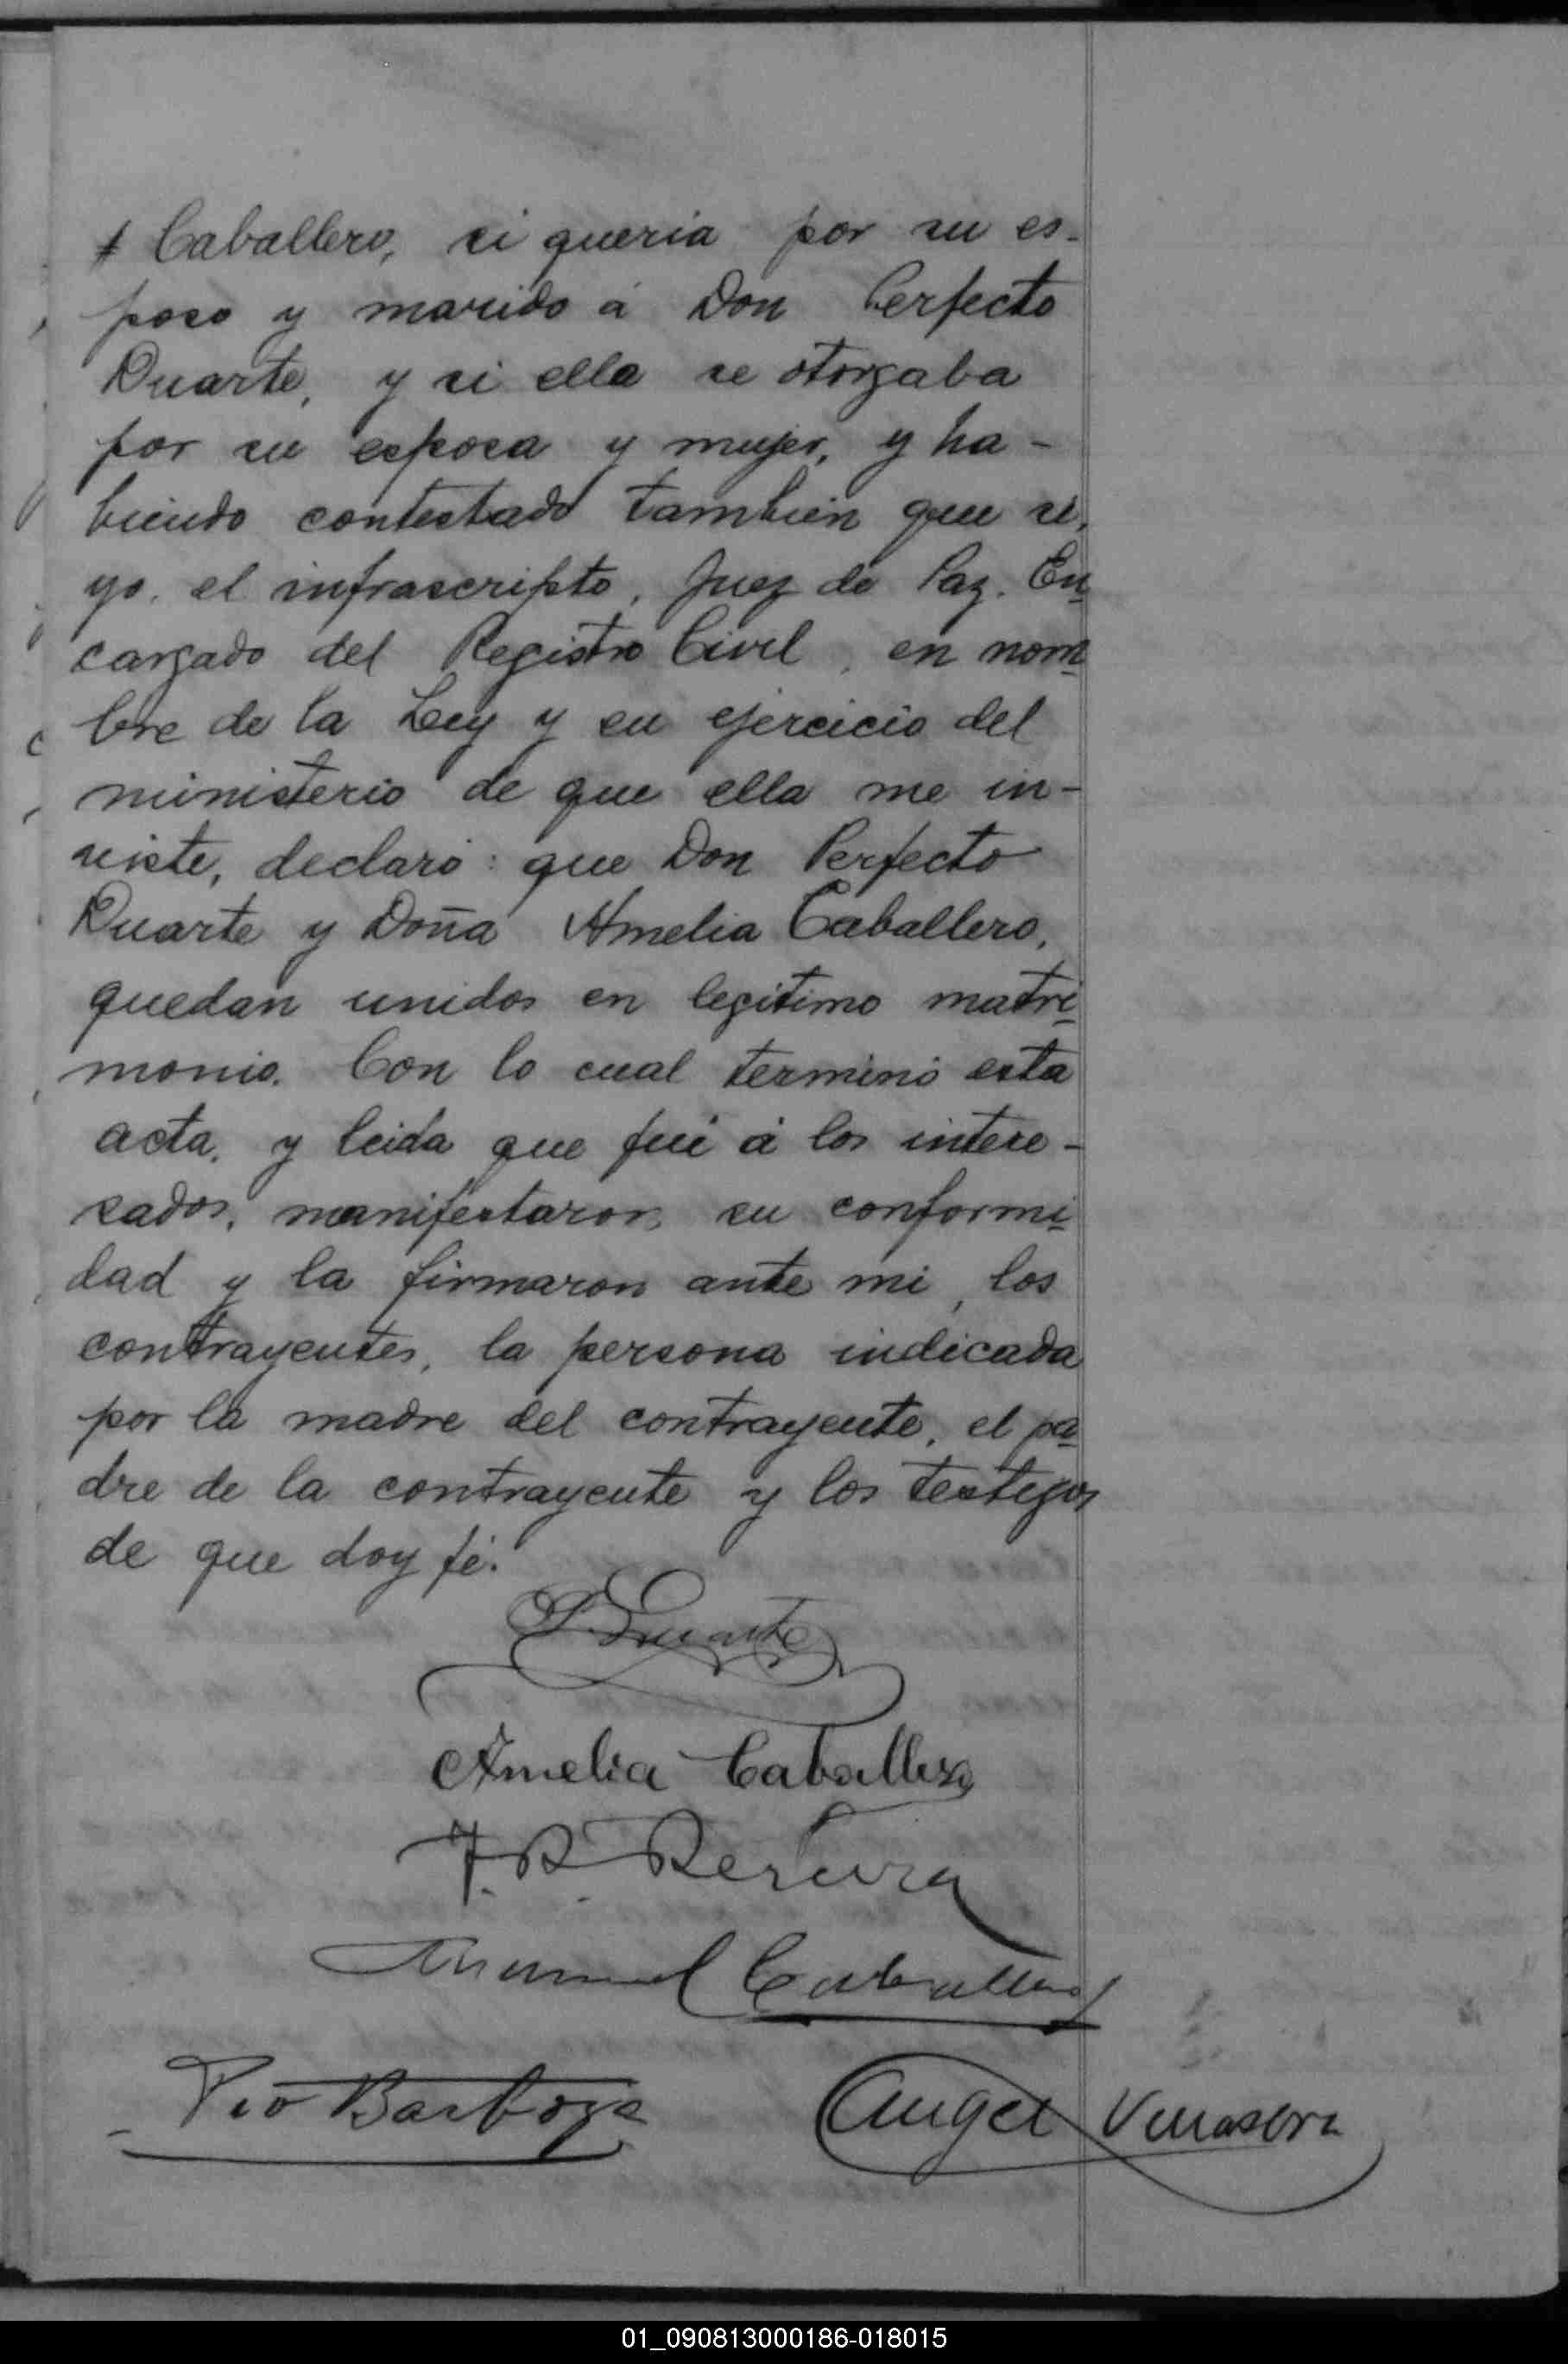 # Caballero, si queria por su es-
poso y marido á Don Perfecto
Duarte, y si ella se otorgaba
por su esposa y mujer, y ha-
biendo contestado tambien que si,
yo, el infrascripto, Juez de Paz, En
cargado del Registro Civil, en nom
bre de la Ley y en ejercicio del
ministerio de que ella me in-
viste, declaro: que Don Perfecto
Duarte y Doña Amelia Caballero,
quedan unidos en legitimo matri
monio. Con lo cual terminó esta
acta, y leida que fué á los intere-
sados, manifestaron su conformi
dad y la firmaron ante mi, los
contrayentes, la persona indicada
por la madre del contrayente, el pa
dre de la contrayente y los testigos
de que doy fé.
P. Duarte
Amelia Caballero
Manuel Caballero
Pio Barboza
Angel
01_090813000186-018015